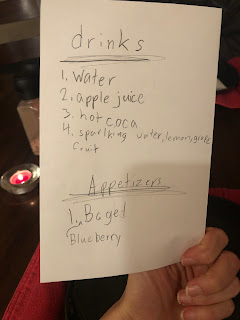 drinks
1. Water
2. apple juice
3. hot coca
4. sparlking water, lemon, grape
fruit
Appetizers
1. Bagel
Blueberry